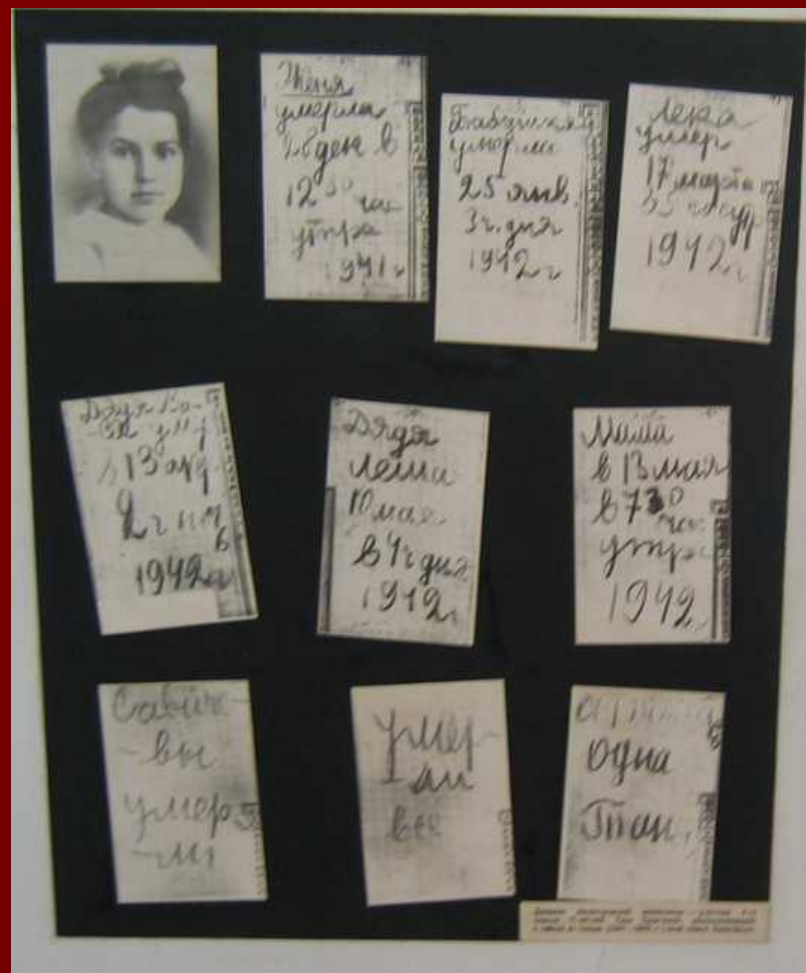 Женя
умерла
28 дек в
12 30 час
утра
1941 г
Бабушка
умерла
25 янв.
3 ч. дня
1942 г
Лека
умер
17 марта
в 5 час утр
1942 г
Дядя Ва-
ся ум
в 13 апр
2 ч ноч
1942 г
Дядя
Леша
10 мая
в 4 ч дня
1942 г
Мама
в 13 мая
в 7 30 час
утра
1942
Савиче-
-вы
умер
-ли
умер-
-ли
все
одна
Таня